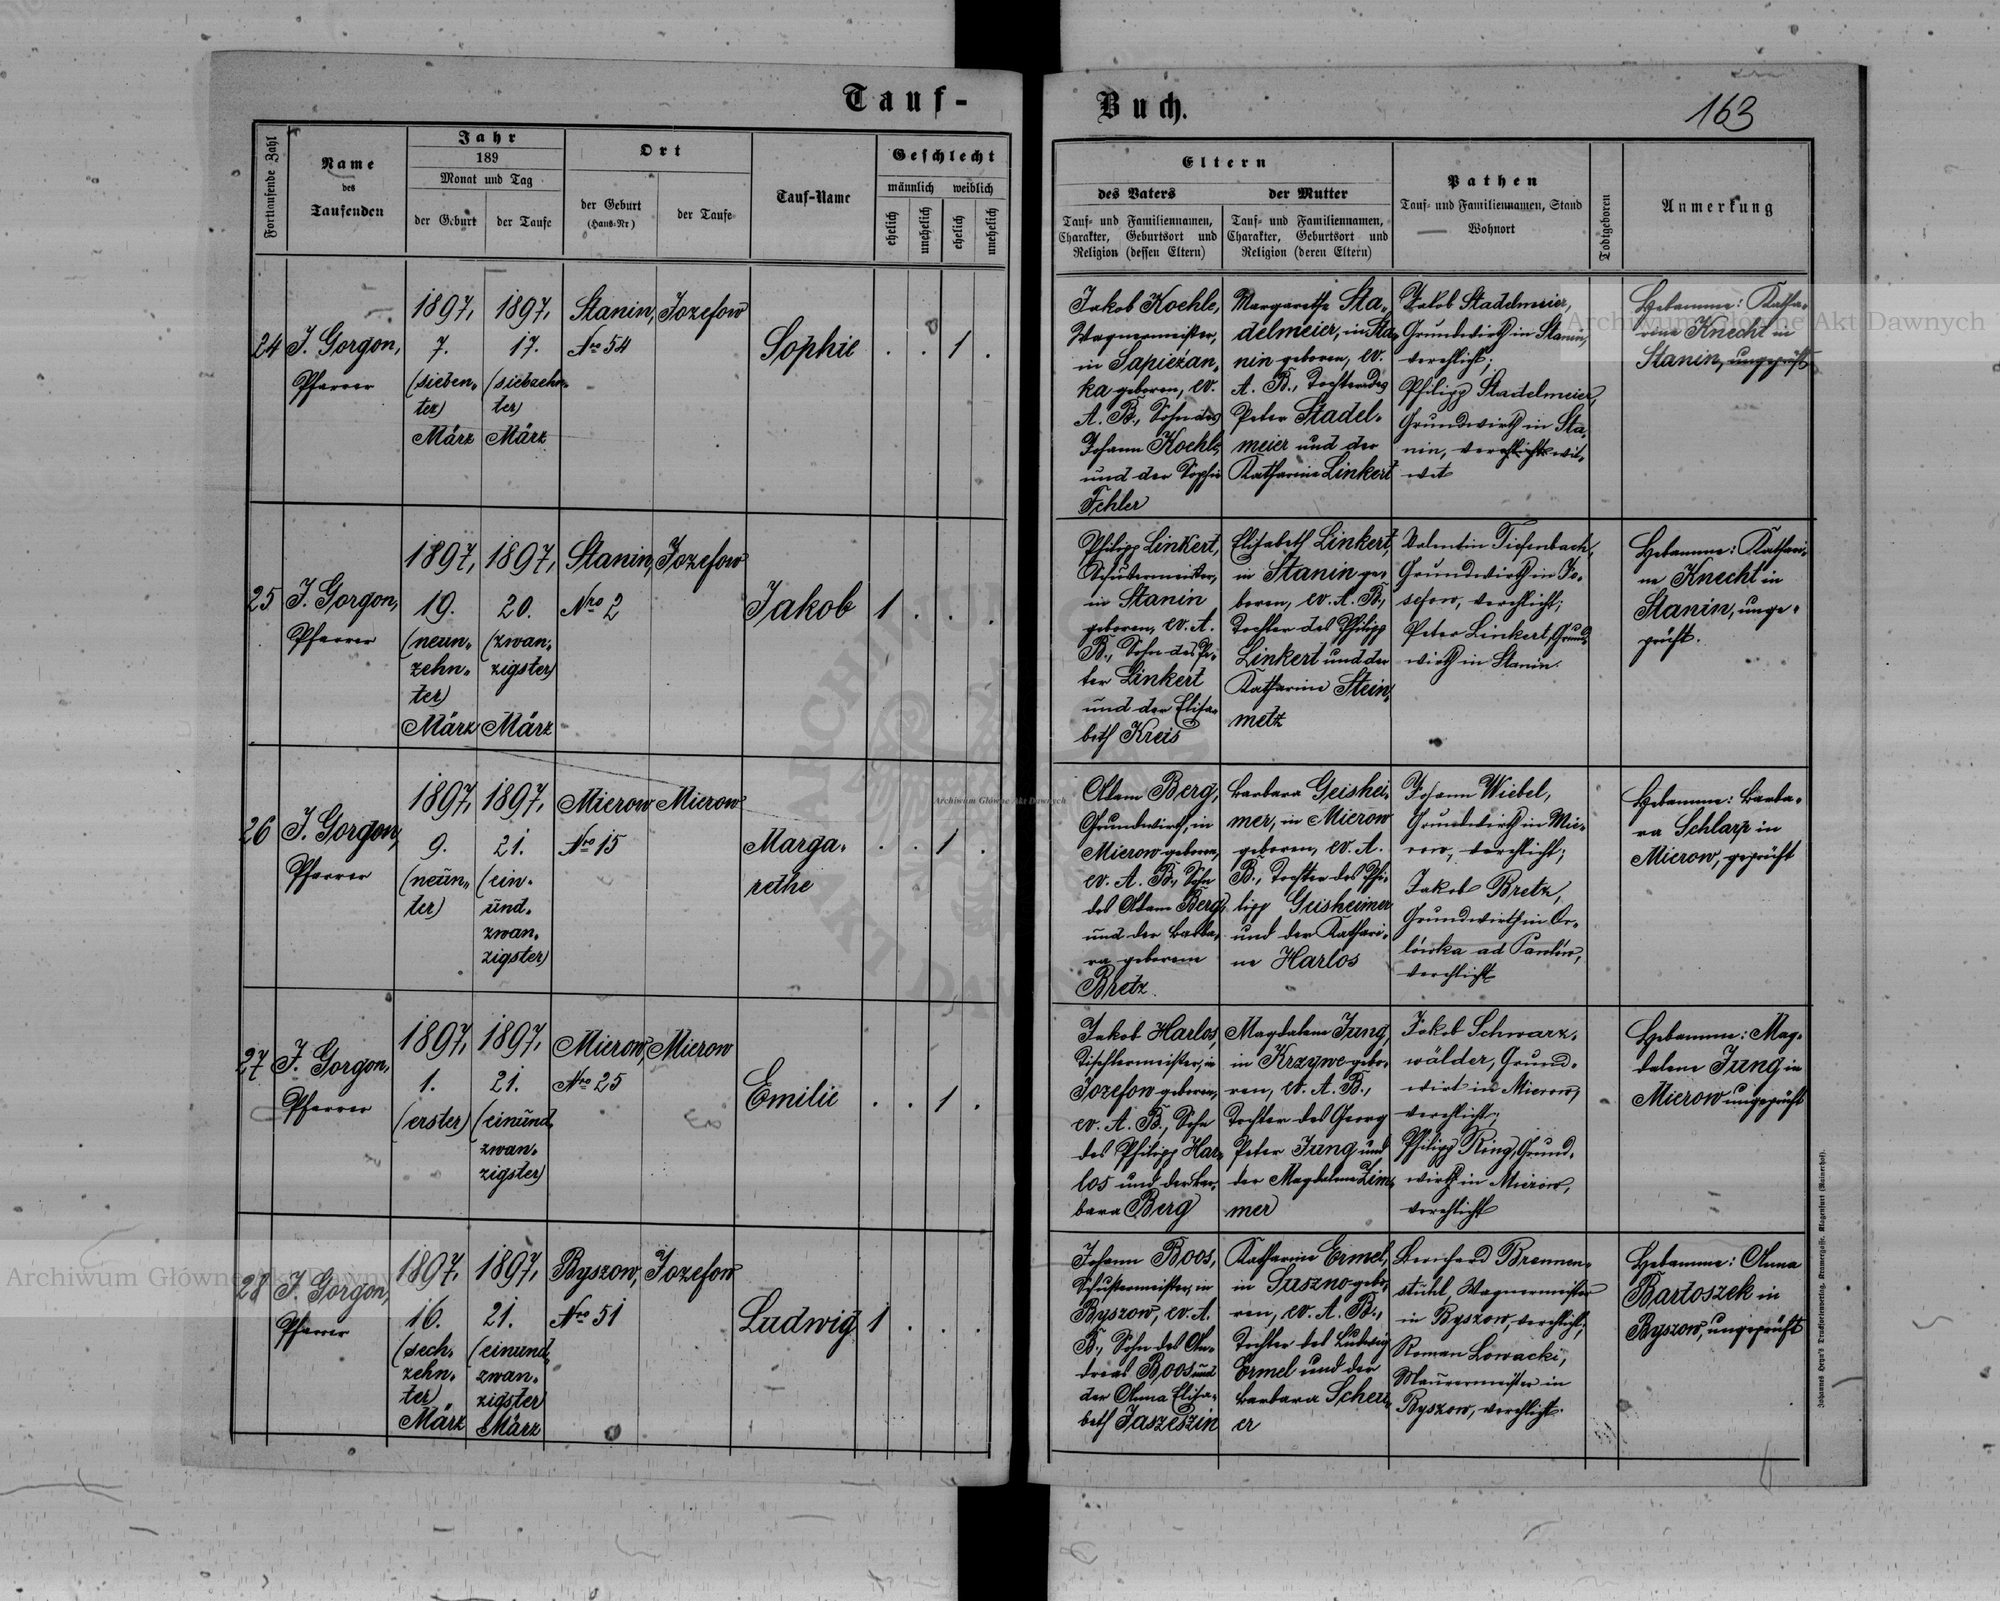 Tauf-
Buch.
163
Fortlaufende Zahl
Name
des
Taufenden
Jahr
189
Monat und Tag
der Geburt
der Taufe
Ort
der Geburt
(Haus-Nr)
der Taufe
Tauf-Name
Geschlecht
männlich weiblich
ehelich
unehelich
ehelich
unehelich
Eltern
des Vaters
Tauf- und Familiennamen,
Charakter, Geburtsort und
Religion (dessen Eltern)
der Mutter
Tauf- und Familiennamen,
Charakter, Geburtsort und
Religion (deren Eltern)
Pathen
Tauf- und Familiennamen, Stand
Wohnort
Todtgeboren
Anmerkung
24
J. Gorgon,
Pfarrer
1897,
7.
(sieben-
ter)
März
1897,
17.
(siebzehn-
ter)
März
Stanin,
Nro 54
Jozefow
Sophie
. . 1 .
Jakob Koehle,
Wagnermeister,
in Sapiezan-
ka geboren, ev.
A. B., Sohn des
Johann Koehle
und der Sophie
Margarethe Sta-
delmeier, in Sta-
nin geboren, ev.
A. B., Tochter des
Peter Stadel-
meier und der
Katharine Linkert
Jakob Stadelmeier,
Grundwirth in Stanin,
verehlicht;
Philipp Stadelmeier,
Grundwirth in Sta-
nin, verehlicht wit-
wet
Hebamme: Katha-
rine Knecht in
Stanin, ungeprüft
25
J. Gorgon,
Pfarrer
1897,
19.
(neun-
zehn-
ter)
März
1897,
20.
(zwan-
zigster)
März
Stanin,
Nro 2
Jozefow
Jakob
1 . . .
Philipp Linkert,
in Stanin
geboren, ev. A.
B., Sohn des Pe-
ter Linkert
und der Elisa-
beth Kreis
Elisabeth Linkert,
in Stanin ge-
boren, ev. A. B.,
Tochter des Philipp
Linkert und der
Katharine Stein-
metz
Valentin Tiefenbach,
Grundwirth in Jo-
sefow, verehlicht;
Peter Linkert, Grund-
wirth in Stanin.
Hebamme: Kathari-
ne Knecht in
Stanin, unge-
prüft.
26
J. Gorgon,
Pfarrer
1897,
9.
(neun-
ter)
1897,
21.
(ein-
und-
zwan-
zigster)
Mierow
Nro 15
Mierow
Marga-
rethe
. . 1 .
Adam Berg,
Grundwirth, in
Mierow geboren,
ev. A. B., Sohn
des Adam Berg
und der Barba-
ra geborene
Bretz.
Barbara Geishei-
mer, in Mierow
geboren, ev. A.
B., Tochter des Phi-
lipp Geisheimer
und der Kathari-
ne Harlos
Johann Wiebel,
Grundwirth in Mie-
row, verehlicht;
Jakob Bretz,
Grundwirth in Or-
lówka ad Pawlów,
verehlicht
Hebamme: Barba-
ra Schlarp in
Mierow, geprüft
27
J. Gorgon,
Pfarrer
1897,
1.
(erster)
1897,
21.
(einund-
zwan-
zigster)
Mierow,
Nro 25
Mierow
Emilie
. . 1 .
Jakob Harlos,
Tischlermeister, in
Jozefow geboren,
ev. A. B., Sohn
des Philipp Har-
los und der Bar-
bara Berg
Magdalena Jung,
in Krzywe gebo-
ren, ev. A. B.,
Tochter des Georg
Peter Jung und
der Magdalena Zim-
mer
Jakob Schwarz-
wälder, Grund-
wirt in Mierow,
verehlicht;
Philipp Ring, Grund-
wirth in Mierow,
verehlicht
Hebamme: Mag-
dalena Jung in
Mierow ungeprüft
28
J. Gorgon,
Pfarrer
1897,
16.
(sech-
zehn-
ter)
März
1897,
21.
(einund-
zwan-
zigster)
März
Byszow,
Nro 51
Jozefow
Ludwig
1 . . .
Johann Boos,
Schustermeister, in
Byszow, ev. A.
B., Sohn des An-
dreas Boos und
der Anna Elisa-
beth Jaszeszin
Katharine Ermel,
in Suszno gebo-
ren, ev. A. B.,
Tochter des Ludwig
Ermel und der
Barbara Scheu-
er
Bernhard Brennen-
stuhl, Wagnermeister
in Byszow, verehlicht;
Roman Lowacki,
Maurermeister in
Byszow, verehlicht.
Hebamme: Anna
Bartoszek in
Byszow, ungeprüft
Archiwum Główne Akt Dawnych
Archiwum Główne Akt Dawnych
Archiwum Główne Akt Dawnych